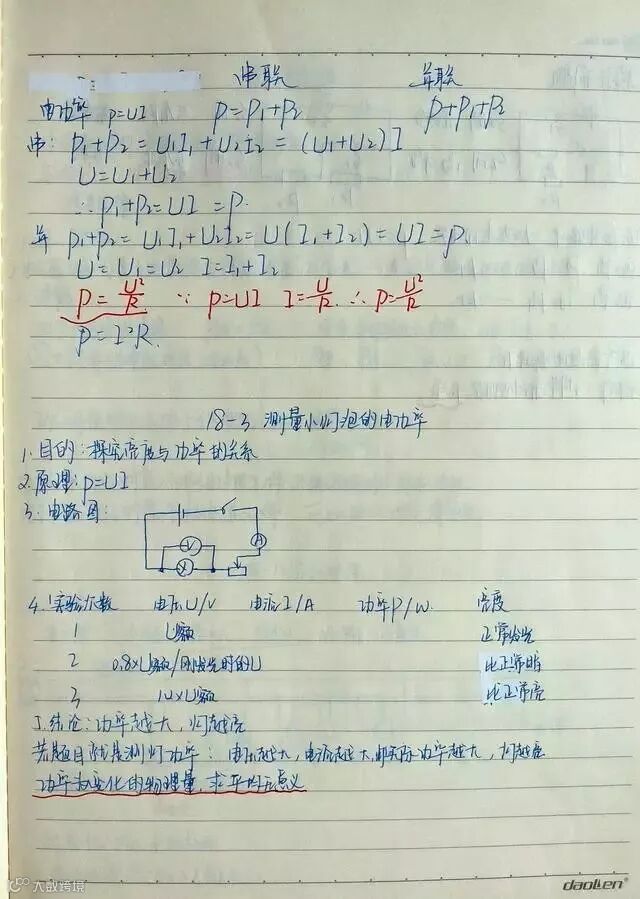 串联 并联
电功率 P=UI P=P₁+P₂ P+P₁+P₂
串: P₁+P₂=U₁I₁+U₂I₂=(U₁+U₂)I
U=U₁+U₂
∴P₁+P₂=UI=P.
并 P₁+P₂=U₁I₁+U₂I₂=U(I₁+I₂)=UI=P.
U=U₁=U₂ I=I₁+I₂
P=U²/R ∵ P=UI I=U/R. ∴P=U²/R
P=I²R.
18-3 测量小灯泡的电功率
1.目的:探究亮度与功率的关系
2.原理:P=UI
3.电路图:
V
A
4.实验次数 电压U/V 电流I/A 功率P/W. 亮度
1 U额 正常发光
2 0.8×U额/刚发光时的U 比正常暗
3 1.2×U额 比正常亮
5.结论:功率越大,灯越亮
若题目就是测灯功率:电压越大,电流越大,即实际功率越大,灯越亮
功率为变化的物理量,求平均无意义
大数跨境
daolien